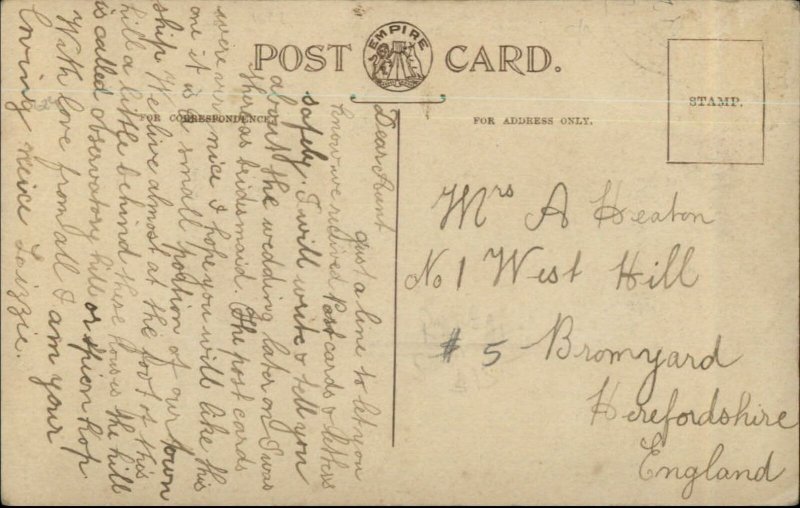 POST CARD.
EMPIRE
FOR CORRESPONDENCE
FOR ADDRESS ONLY.
STAMP.
Dear Aunt
Just a line to let you
know we recived Post cards & letters
safely. I will write & tell you
about the wedding later on I was
ther as bridesmaid. The post cards
were very nice I hope you will like this
one it is a small portion of our town
ship We live almost at the foot of this
hill a little behind these houses the hill
is called observatory hill or spion kop
With love from all I am your
loving neice Lizzie.
Mrs A Heaton
No 1 West Hill
# 5 Bromyard
Herefordshire
England